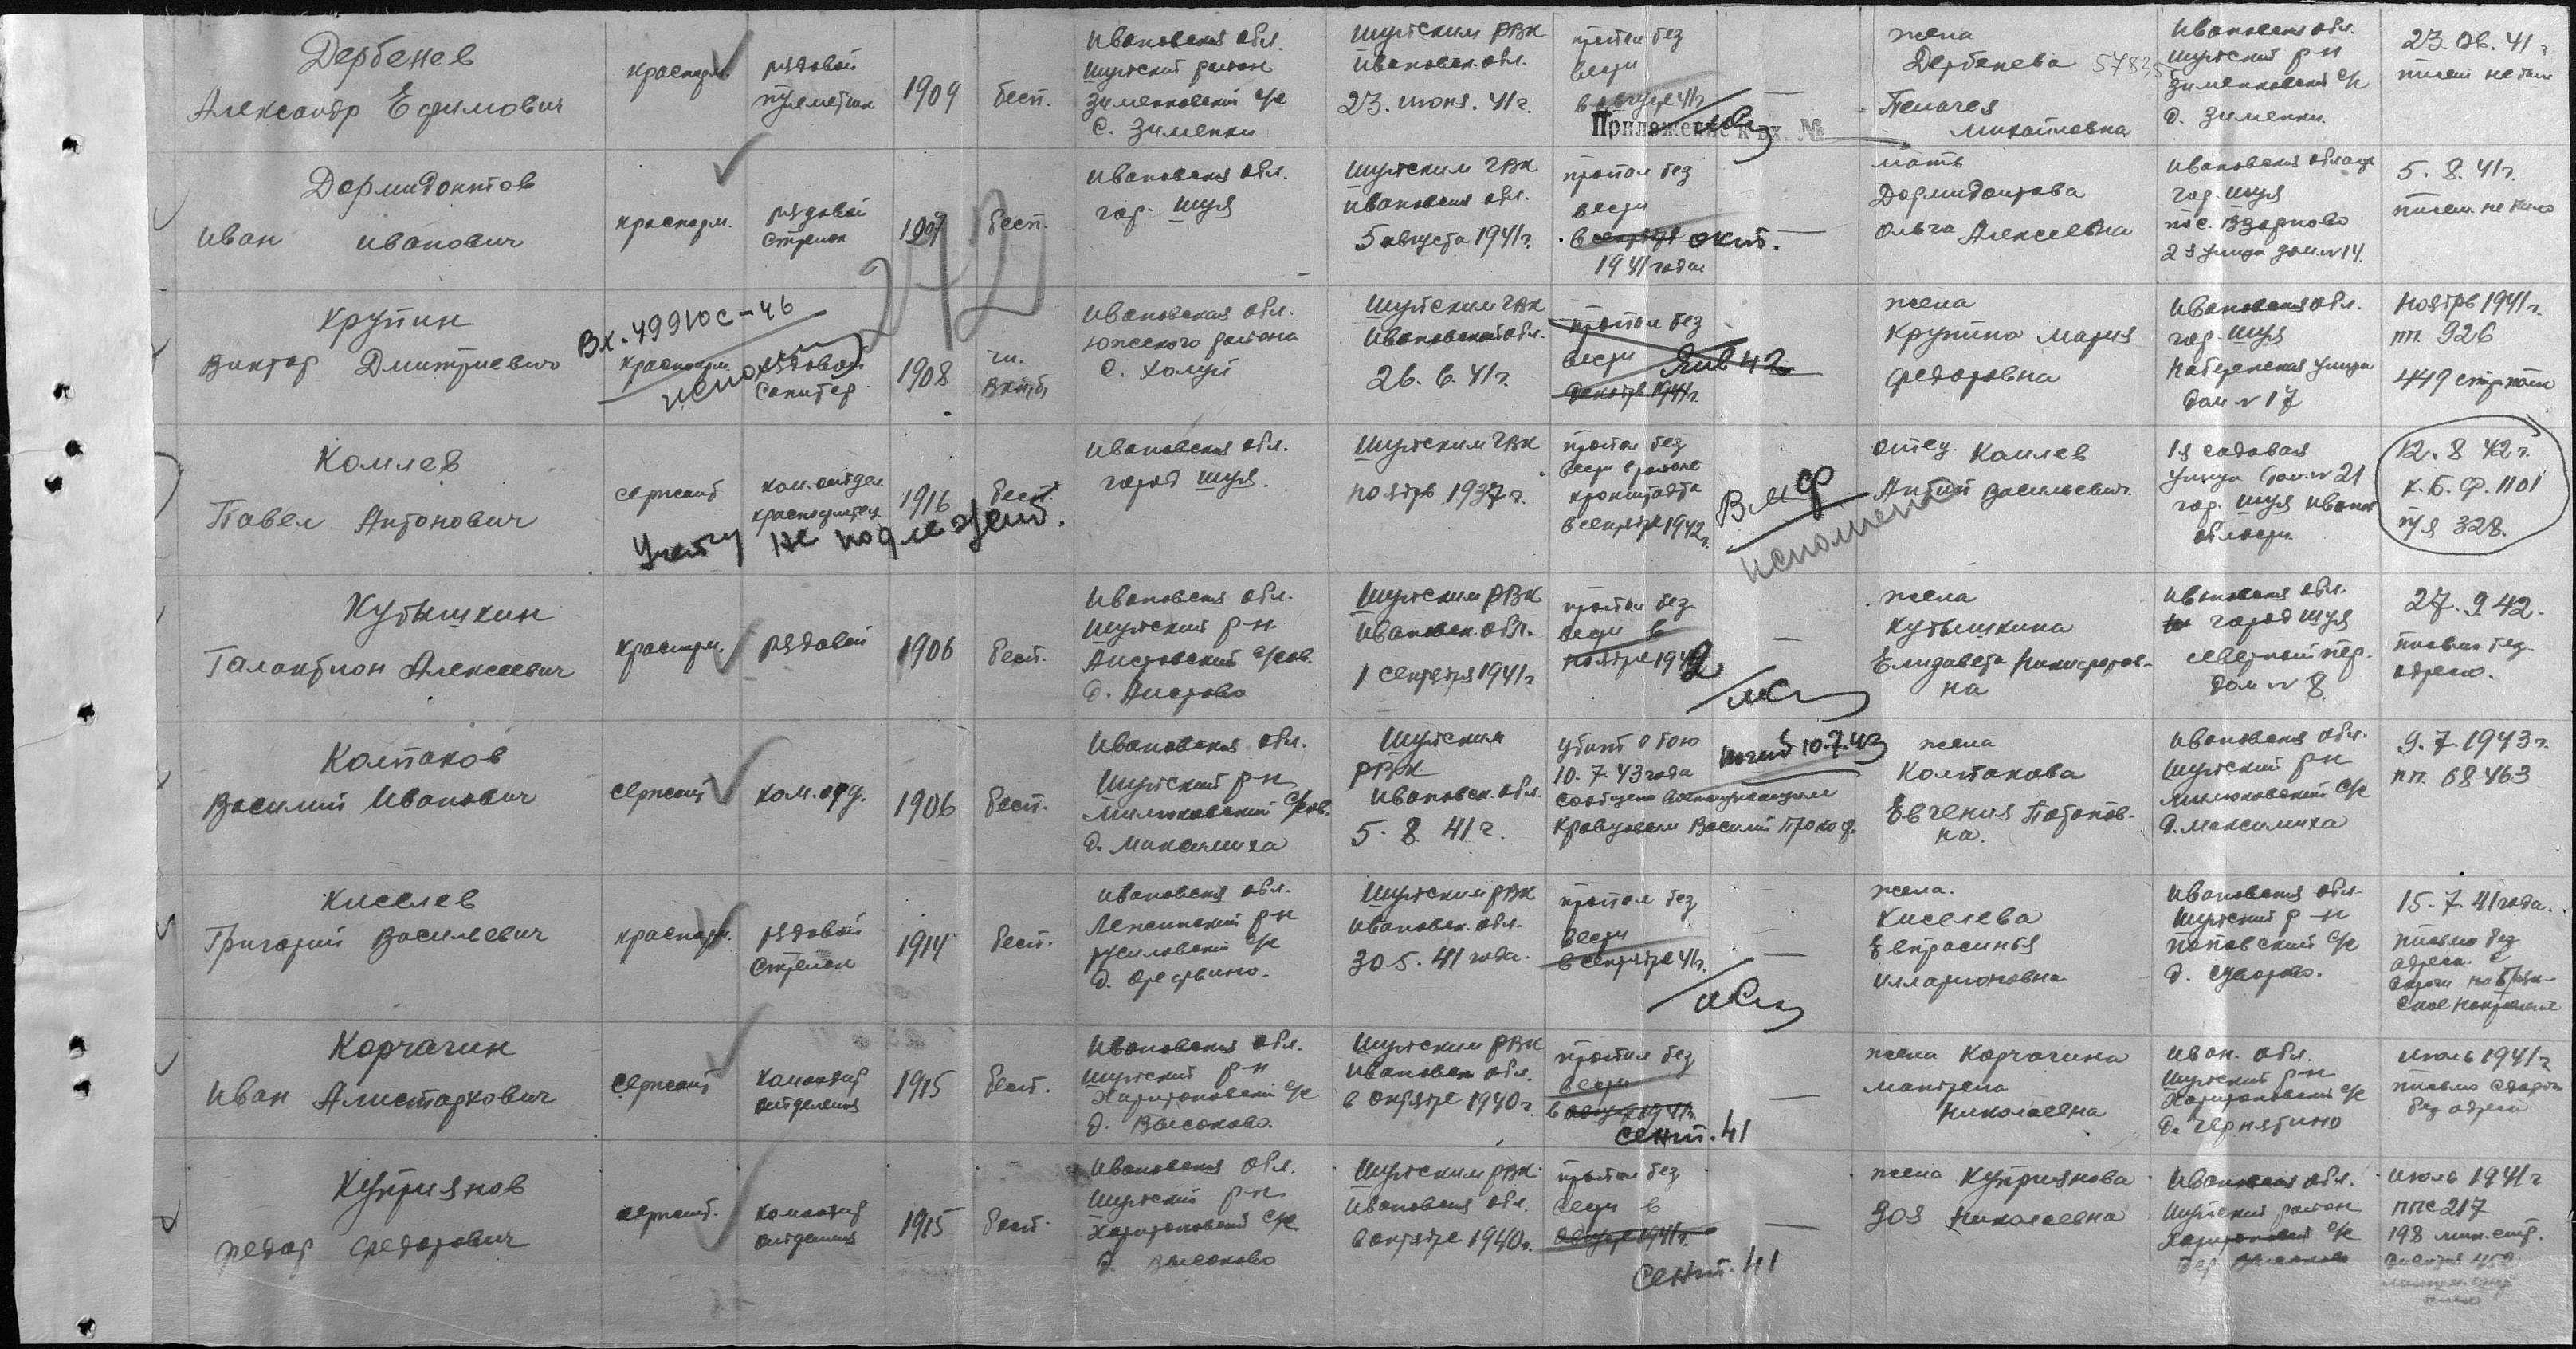 Дербенев
Александр Ефимович
красноарм.
рядовой
пулеметчик
1909
бесп.
Ивановская обл.
Шуйский район
Зименковский с/с
с. Зименки
Шуйским РВК
Ивановск. обл.
23. июня. 41г.
пропал без
вести
в августе 41г
Приложение к вх. №
жена
Дербенева
Пелагея
Михайловна
57835
Ивановская обл.
Шуйский р-н
Зименковский с/с
д. Зименки.
23. 06. 41г
писем не было
Дормидонтов
Иван Иванович
красноарм.
рядовой
стрелок
бесп.
Ивановская обл.
гор. Шуя
Шуйским ГВК
Ивановская обл.
5 августа 1941г.
пропал без
вести
в сентябре окт.
1941 года
мать
Дормидонтова
Ольга Алексеевна
Ивановская область
гор. Шуя
2я улица дом № 14.
5. 8. 41г.
писем не было
242
Крупин
Виктор Дмитриевич
Вх. 49910с-46
красноарм.
рядовой
санитар
1908
чл.
ВКП(б)
Ивановская обл.
Южского района
с. Холуй
Шуйским ГВК
Ивановской обл.
26. 6. 41г.
пропал без
вести Янв 42
декабрь 1941г.
жена
Крупина Мария
Федоровна
Ивановская обл.
гор. Шуя
Набережная улица
дом № 17
ноябрь 1941г.
пп. 926
449 стр. полк
Комлев
Павел Антонович
сержант
ком. отдел
1916
бесп.
Учету не подлежит.
Ивановская обл.
город Шуя.
Шуйским ГВК
ноябрь 1937г.
пропал без
вести в районе
Кронштадта
в сентябре 1942г.
ВМФ
исполнено
отец Комлев
Антон Васильевич.
1я садовая
улица дом № 21
гор. Шуя Иванов
области.
12. 8 42г.
К. Б. Ф. 1101
п/я 328.
Кутышкин
Галактион Алексеевич
красноарм.
рядовой
1906
бесп.
Ивановская обл.
Шуйский р-н
д.
Шуйским РВК
Ивановск. обл.
1 сентября 1941г
пропал без
вести в
ноябре 1942
жена
Кутышкина
Елизавета Никифоров-
на
Ивановская обл.
город Шуя
северный пер.
дом № 8.
27. 9 42.
письмо без
адреса.
Колпаков
Василий Иванович
сержант
ком. оруд.
1906
бесп.
Ивановская обл.
Шуйский р-н
Милюковский с/сов.
д. Максимиха
Шуйским
РВК
Ивановск. обл.
5. 8 41г.
убит в бою
10. 7. 43 года
сообщено военнослужащим
Кравцовым Василий Прокоф.
погиб 10.7.43
жена
Колпакова
Евгения Потапов-
на.
Ивановская обл.
Шуйский р-н
Милюковский с/с
д. Максимиха
9. 7 1943г.
пп. 68463
Киселев
Григорий Васильевич
красноарм.
рядовой
стрелок
1914
бесп.
Ивановская обл.
р-н
с/с
д.
Шуйским РВК
Ивановск. обл.
30 5. 41 года.
пропал без
вести
в сентябре 41г.
жена.
Киселева
Евпраксинья
Илларионовна
Ивановская обл.
Шуйский р-н
Поповский с/с
д. Суворово.
15. 7. 41 года.
письмо без
адреса. с
Корчагин
Иван Алистархович
сержант
командир
отделения
1915
бесп.
Ивановская обл.
Шуйский р-н
Харитоновский с/с
д. Высоково.
Шуйским РВК
Ивановск обл.
в октябре 1940г.
пропал без
вести
в августе 1941г.
сент. 41
жена Корчагина
Николаевна
Иван. обл.
Шуйский р-н
Харитоновский с/с
д. Чернятино
июль 1941г
письмо
без адреса
Куприянов
Федор Федорович
сержант.
командир
отделения
1915
бесп.
Ивановская обл.
Шуйский р-н
Харитоновский с/с
д. Высоково
Шуйским РВК
Ивановская обл.
в октябре 1940г.
пропал без
вести в
августе 1941г.
сент. 41
жена Куприянова
Зоя Николаевна
Ивановская обл.
Шуйский район
Харитоновский с/с
дер Высоково
июль 1941г
ппс 217
198 мин. стр.